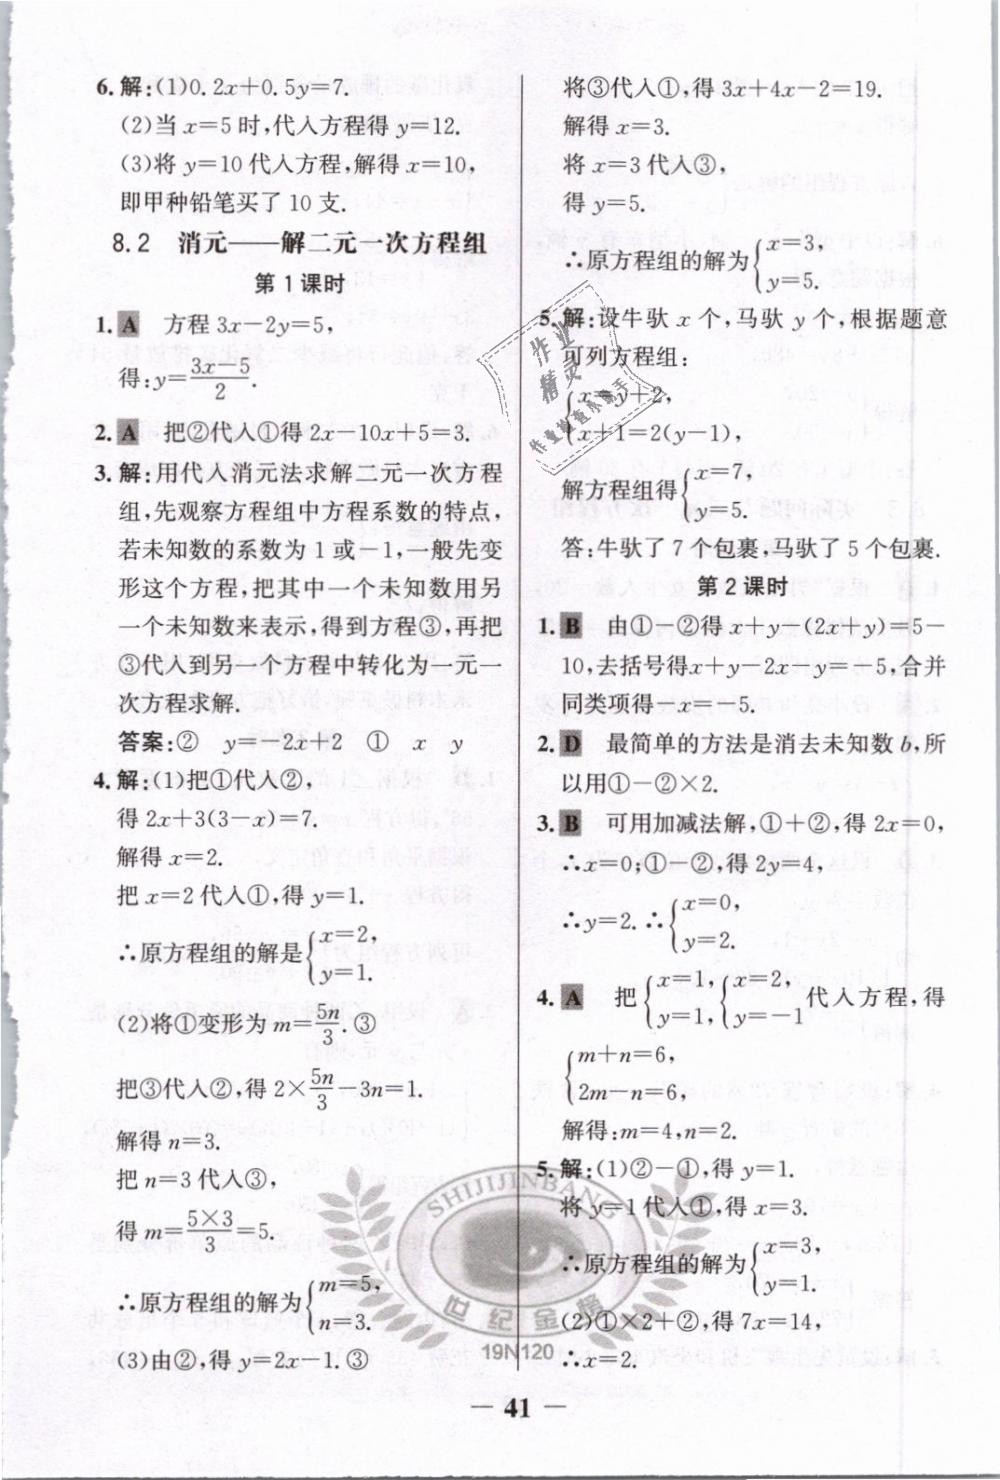 6. 解:(1)0.2x+0.5y=7.
(2)当 x=5 时,代入方程得 y=12.
(3)将 y=10 代入方程,解得 x=10,
即甲种铅笔买了 10 支.
8.2 消元——解二元一次方程组
第 1 课时
1. A 方程 3x-2y=5,
得:y=(3x-5)/2.
2. A 把②代入①得 2x-10x+5=3.
3. 解:用代入消元法求解二元一次方程
组,先观察方程组中方程系数的特点,
若未知数的系数为 1 或-1,一般先变
形这个方程,把其中一个未知数用另
一个未知数来表示,得到方程③,再把
③代入到另一个方程中转化为一元一
次方程求解.
答案:② y=-2x+2 ① x y
4. 解:(1)把①代入②,
得 2x+3(3-x)=7.
解得 x=2.
把 x=2 代入①,得 y=1.
∴原方程组的解是{x=2,
y=1.
(2)将①变形为 m=5n/3.③
把③代入②,得 2×5n/3-3n=1.
解得 n=3.
把 n=3 代入③,
得 m=(5×3)/3=5.
∴原方程组的解为{m=5,
n=3.
(3)由②,得 y=2x-1.③
将③代入①,得 3x+4x-2=19.
解得 x=3.
将 x=3 代入③,
得 y=5.
∴原方程组的解为{x=3,
y=5.
5. 解:设牛驮 x 个,马驮 y 个,根据题意
可列方程组:
{x=y+2,
x+1=2(y-1),
解方程组得{x=7,
y=5.
答:牛驮了 7 个包裹,马驮了 5 个包裹.
第 2 课时
1. B 由①-②得 x+y-(2x+y)=5-
10,去括号得x+y-2x-y=-5,合并
同类项得-x=-5.
2. D 最简单的方法是消去未知数 b,所
以用①-②×2.
3. B 可用加减法解,①+②,得 2x=0,
∴x=0;①-②,得 2y=4,
∴y=2.∴{x=0,
y=2.
4. A 把{x=1, {x=2, 代入方程,得
y=1, y=-1
{m+n=6,
2m-n=6,
解得:m=4,n=2.
5. 解:(1)②-①,得 y=1.
将 y=1 代入①,得 x=3.
∴原方程组的解为{x=3,
y=1.
(2)①×2+②,得 7x=14,
∴x=2.
作业
精灵
作业检查小助手
SHIJIJINBANG
世纪金榜
19N120
— 41 —